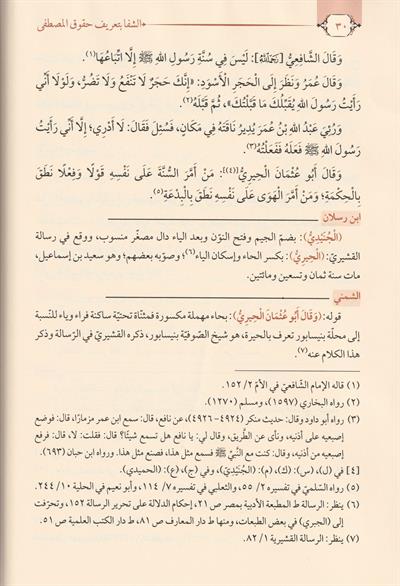 ٣٠
الشفا بتعريف حقوق المصطفى
وَقَالَ الشَّافِعِيُّ [رَحِمَهُ اللهُ]: لَيْسَ فِي سُنَّةِ رَسُولِ اللهِ ﷺ إِلَّا اتِّبَاعُهَا(١).
وَقَالَ عُمَرُ وَنَظَرَ إِلَى الْحَجَرِ الْأَسْوَدِ: «إِنَّكَ حَجَرٌ لَا تَنْفَعُ وَلَا تَضُرُّ، وَلَوْلَا أَنِّي
رَأَيْتُ رَسُولَ اللهِ يُقَبِّلُكَ مَا قَبَّلْتُكَ»، ثُمَّ قَبَّلَهُ(٢).
وَرُئِيَ عَبْدُ اللهِ بْنُ عُمَرَ يُدِيرُ نَاقَتَهُ فِي مَكَانٍ، فَسُئِلَ فَقَالَ: لَا أَدْرِي؛ إِلَّا أَنِّي رَأَيْتُ
رَسُولَ اللهِ ﷺ فَعَلَهُ فَفَعَلْتُهُ(٣).
وَقَالَ أَبُو عُثْمَانَ الْحِيرِيُّ[(٤)]: مَنْ أَمَّرَ السُّنَّةَ عَلَى نَفْسِهِ قَوْلًا وَفِعْلًا نَطَقَ
بِالْحِكْمَةِ؛ وَمَنْ أَمَّرَ الْهَوَى عَلَى نَفْسِهِ نَطَقَ بِالْبِدْعَةِ(٥).
ابن رسلان
(الْجُنَيْدِيُّ): بضمّ الجيم وفتح النوّن وبعد الياء دال مصغّر منسوب، ووقع في رسالة
القشيريّ: (الْحِيرِيُّ): بكسر الحاء وإسكان الياء(٦)؛ وصوّبه بعضهم؛ وهو سعيد بن إسماعيل،
مات سنة ثمان وتسعين ومائتين.
الشمني
قوله: (وَقَالَ أَبُو عُثْمَانَ الْحِيرِيُّ): بحاء مهملة مكسورة فمثنّاة تحتيّة ساكنة فراء وياء للنّسبة
إلى محلّة بنيسابور تعرف بالحيرة، هو شيخ الصّوفيّة بنيسابور، ذكره القشيريّ في الرّسالة وذكر
هذا الكلام عنه(٧).
(١) قاله الإمام الشّافعيّ في الأمّ ٢/ ١٥٢.
(٢) رواه البخاري (١٥٩٧)، ومسلم (١٢٧٠).
(٣) رواه أبو داود وقال: حديث منكر (٤٩٢٤-٤٩٢٦)، عن نافع، قال: سمع ابن عمر مزمارًا، قال: فوضع
إصبعيه على أذنيه، ونأى عن الطّريق، وقال لي: يا نافع هل تسمع شيئًا؟ قال: فقلت: لا، قال: فرفع
إصبعيه من أذنيه، وقال: كنت مع النّبيّ ﷺ فسمع مثل هذا، فصنع مثل هذا. ورواه ابن حبان (٦٩٣).
[٤] في (ل)، (س)، (ك)، (م): (الْجُنَيْدِيّ)، وفي (ج)، (ع): (الحميدي).
(٥) رواه السّلميّ في تفسيره ٢/ ٥٥، والثعلبي في تفسيره ٧/ ١١٤، وأبو نعيم في الحلية ١٠/ ٢٤٤.
(٦) ينظر: الرسالة ط المطبعة الأدبية بمصر ص ٢١، إحكام الدلالة على تحرير الرسالة ١٥٢، وتحرّفت
إلى (الجبري) في بعض الطبعات، ومنها ط دار المعارف ص ٨١، ط دار الكتب العلمية ص ٥١.
(٧) ينظر: الرسالة القشيرية ١/ ٨٢.